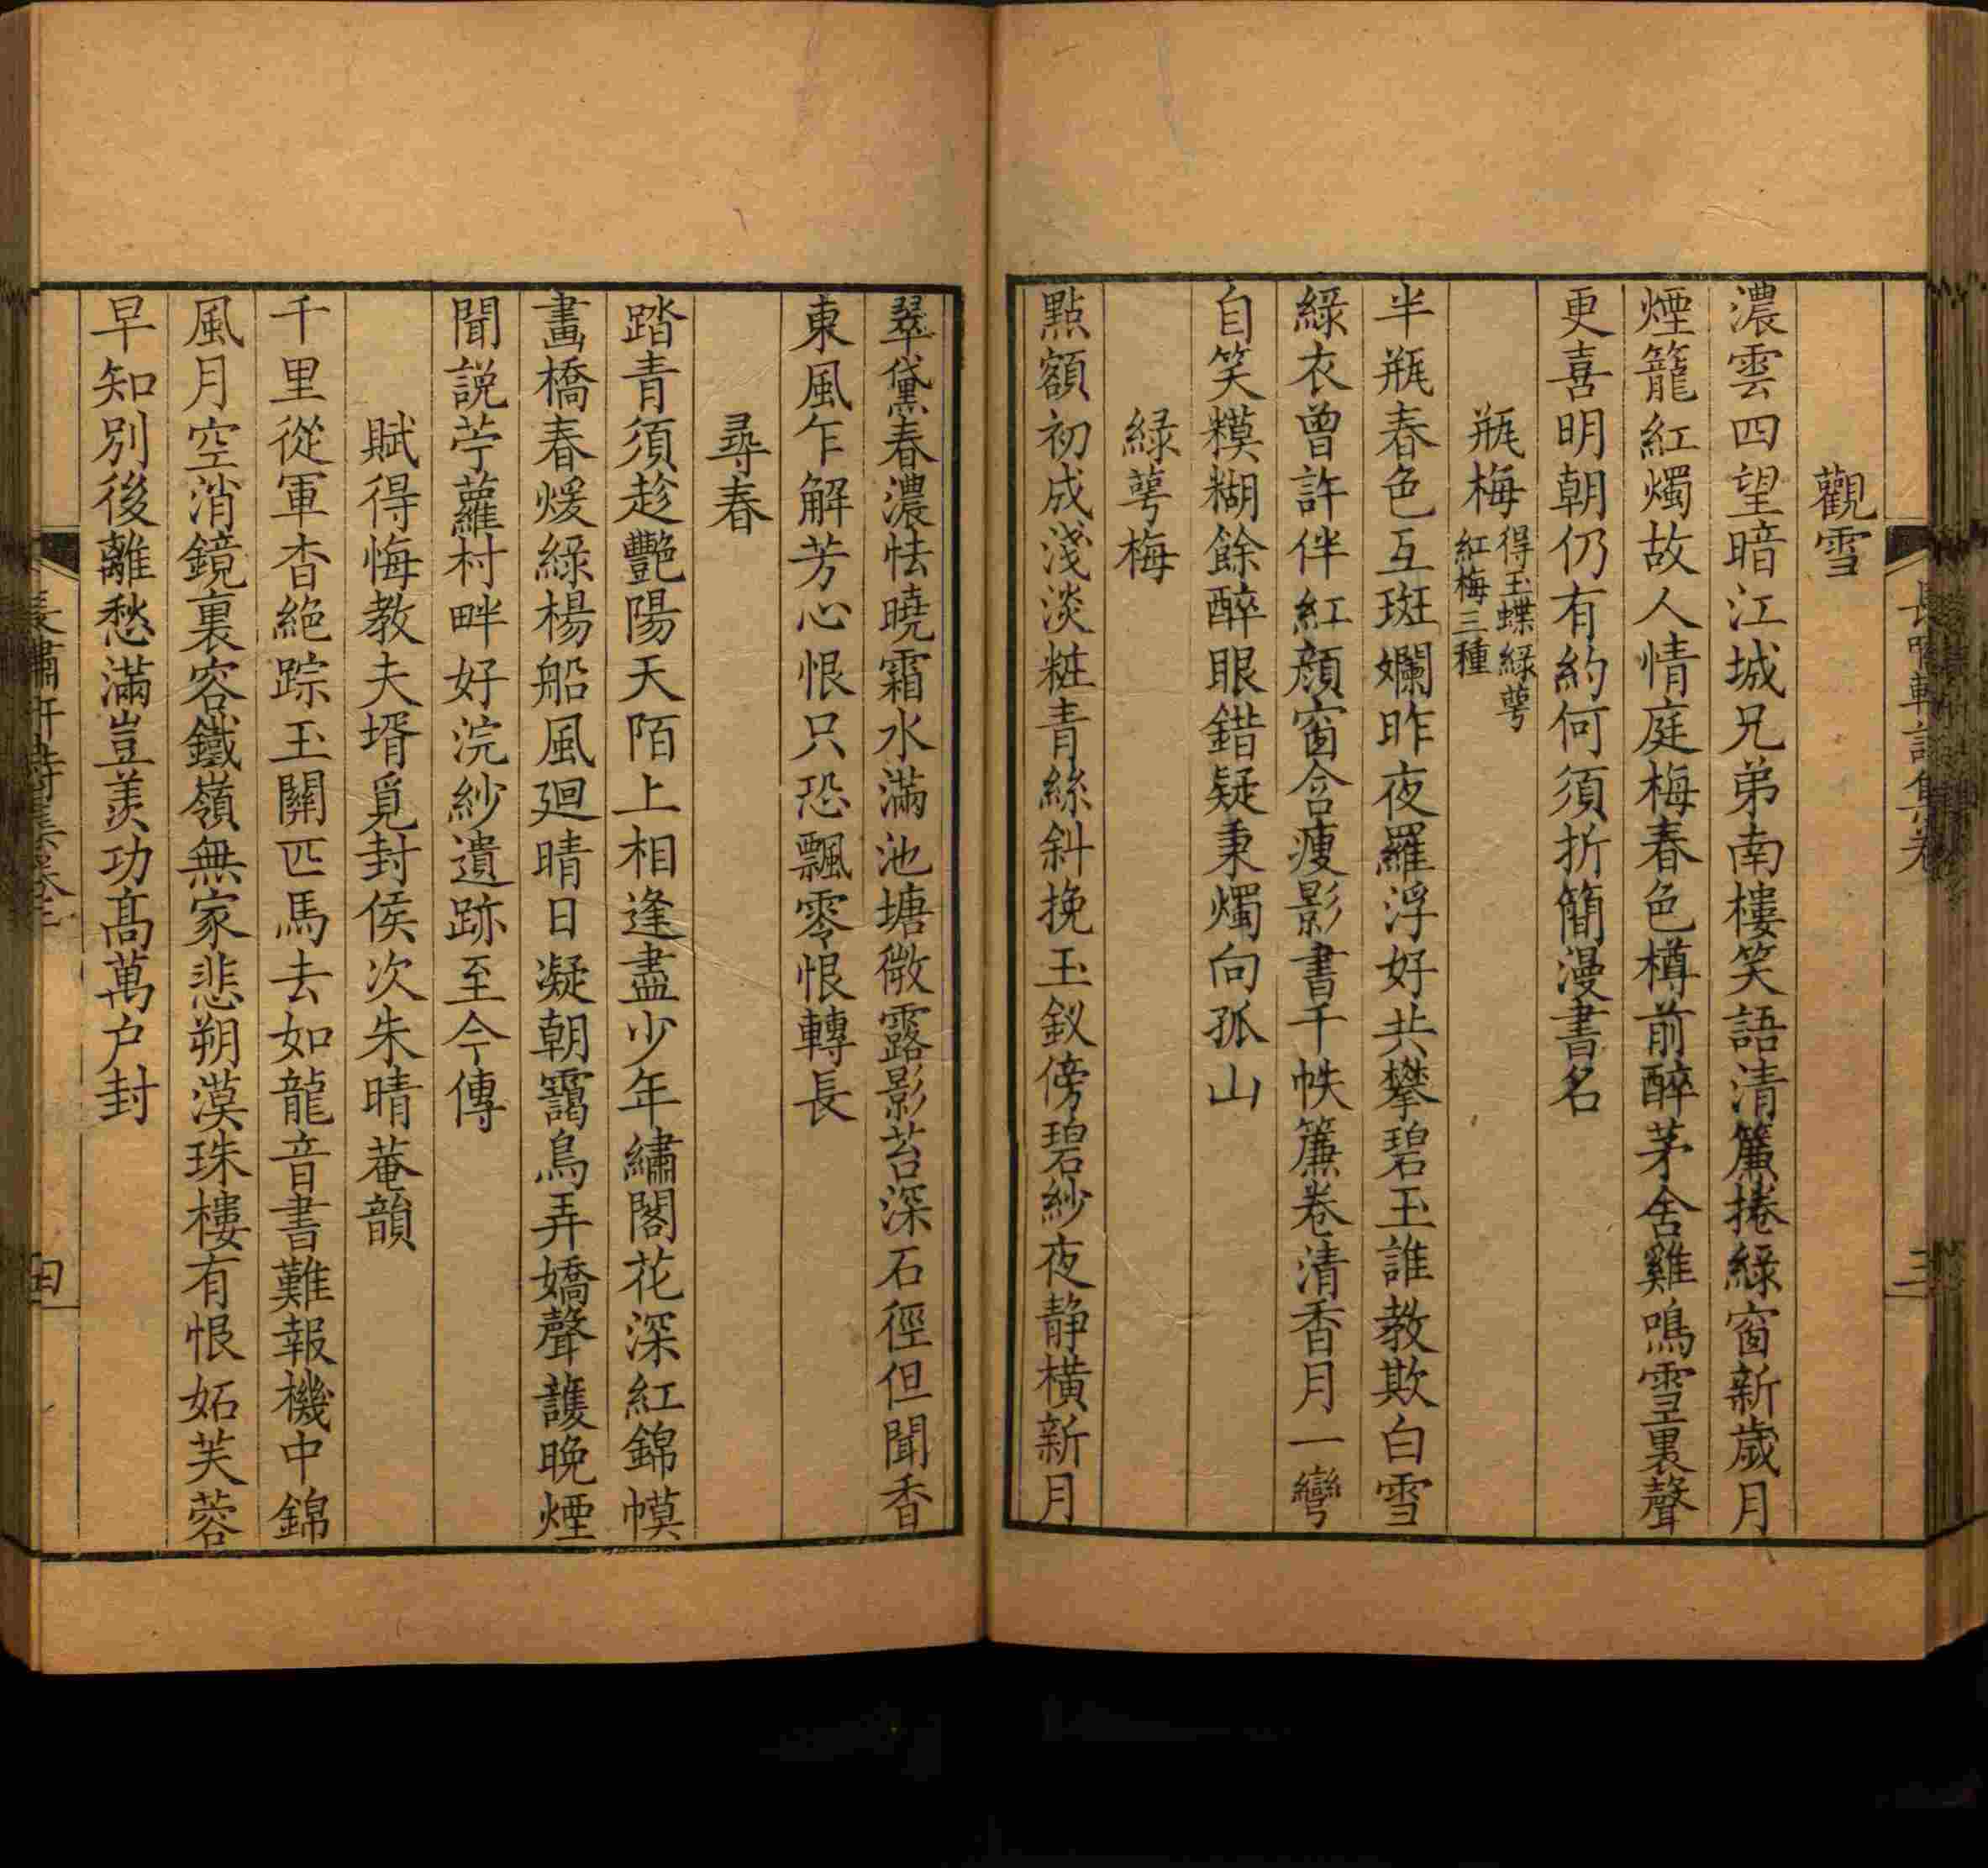 觀雪
濃雲四望暗江城兄弟南樓笑語清簾捲綠窗新歲月
煙籠紅燭故人情庭梅春色樽前醉茅舍雞鳴雪裏聲
更喜明朝仍有約何須折簡漫書名
瓶梅 得玉蝶綠萼
紅梅三種
半瓶春色互斑斕昨夜羅浮好共攀碧玉誰教欺白雪
綠衣曾許伴紅顏窗含瘦影書千帙簾卷清香月一彎
自笑糢糊餘醉眼錯疑秉燭向孤山
綠萼梅
點額初成淺淡粧青絲斜挽玉釵傍碧紗夜静橫新月
翠黛春濃怯曉霜水滿池塘微露影苔深石徑但聞香
東風乍解芳心恨只恐飄零恨轉長
尋春
踏青須趁艷陽天陌上相逢盡少年繡閣花深紅錦幙
畫橋春煖綠楊船風廻晴日凝朝靄鳥弄嬌聲護晚煙
聞説苧蘿村畔好浣紗遺跡至今傳
賦得悔教夫壻覓封侯次朱晴菴韻
千里從軍杳絶踪玉關匹馬去如龍音書難報機中錦
風月空消鏡裏容鐵嶺無家悲朔漠珠樓有恨妬芙蓉
早知別後離愁滿豈羨功髙萬户封